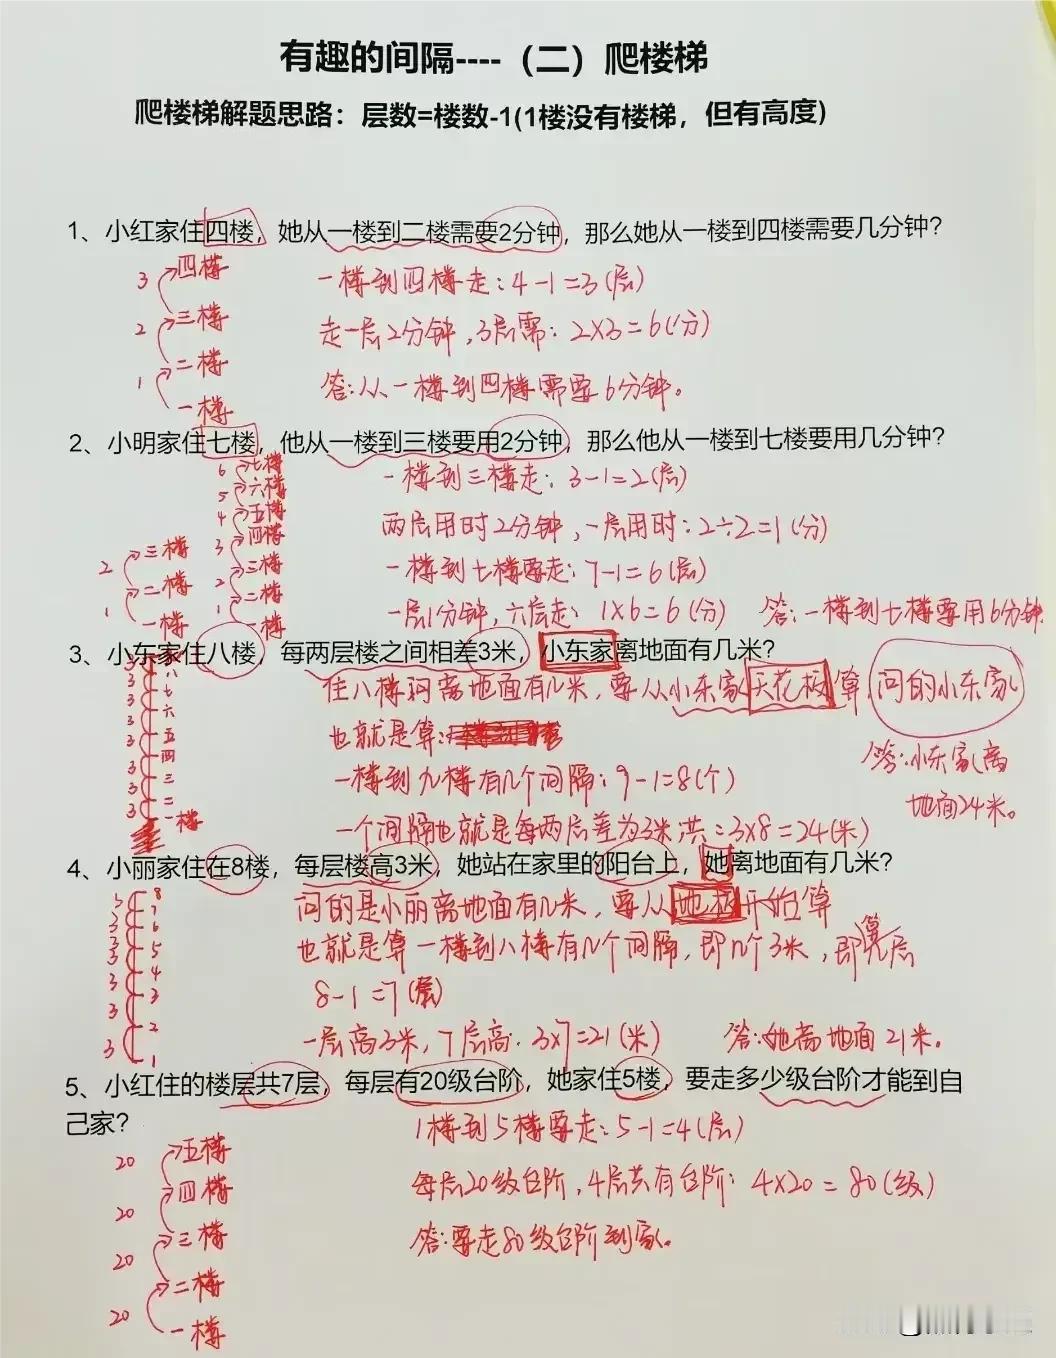 有趣的间隔----（二）爬楼梯
爬楼梯解题思路：层数=楼数-1(1楼没有楼梯，但有高度)
1、小红家住四楼，她从一楼到二楼需要2分钟，那么她从一楼到四楼需要几分钟？
3 四楼
2 三楼
1 二楼
一楼
一楼到四楼走：4-1=3(层)
走一层2分钟，3层需：2×3=6(分)
答：从一楼到四楼需要6分钟。
2、小明家住七楼，他从一楼到三楼要用2分钟，那么他从一楼到七楼要用几分钟？
6 七楼
5 六楼
4 五楼
3 四楼
2 三楼
1 二楼
一楼
2 三楼
1 二楼
一楼
一楼到三楼走：3-1=2(层)
两层用时2分钟，一层用时：2÷2=1(分)
一楼到七楼要走：7-1=6(层)
一层1分钟，六层走：1×6=6(分) 答：一楼到七楼要用6分钟.
3、小东家住八楼，每两层楼之间相差3米，小东家离地面有几米？
3 八
3 七
3 六
3 五
3 四
3 三
3 二
3 一楼
住八楼问离地面有几米，要从小东家天花板算 问的小东家
也就是算：
一楼到九楼有几个间隔：9-1=8(个)
一个间隔也就是每两层差为3米 共：3×8=24(米)
答：小东家离
地面24米。
4、小丽家住在8楼，每层楼高3米，她站在家里的阳台上，她离地面有几米？
3 8
3 7
3 6
3 5
3 4
3 3
3 2
1
问的是小丽离地面有几米，要从地板开始算
也就是算一楼到八楼有几个间隔，即几个3米，即算几层
8-1=7(层)
一层高3米，7层高：3×7=21(米) 答：她离地面21米。
5、小红住的楼层共7层，每层有20级台阶，她家住5楼，要走多少级台阶才能到自
己家？
20 五楼
20 四楼
20 三楼
20 二楼
一楼
1楼到5楼要走：5-1=4(层)
每层20级台阶，4层共有台阶：4×20=80(级)
答：要走80级台阶到家。